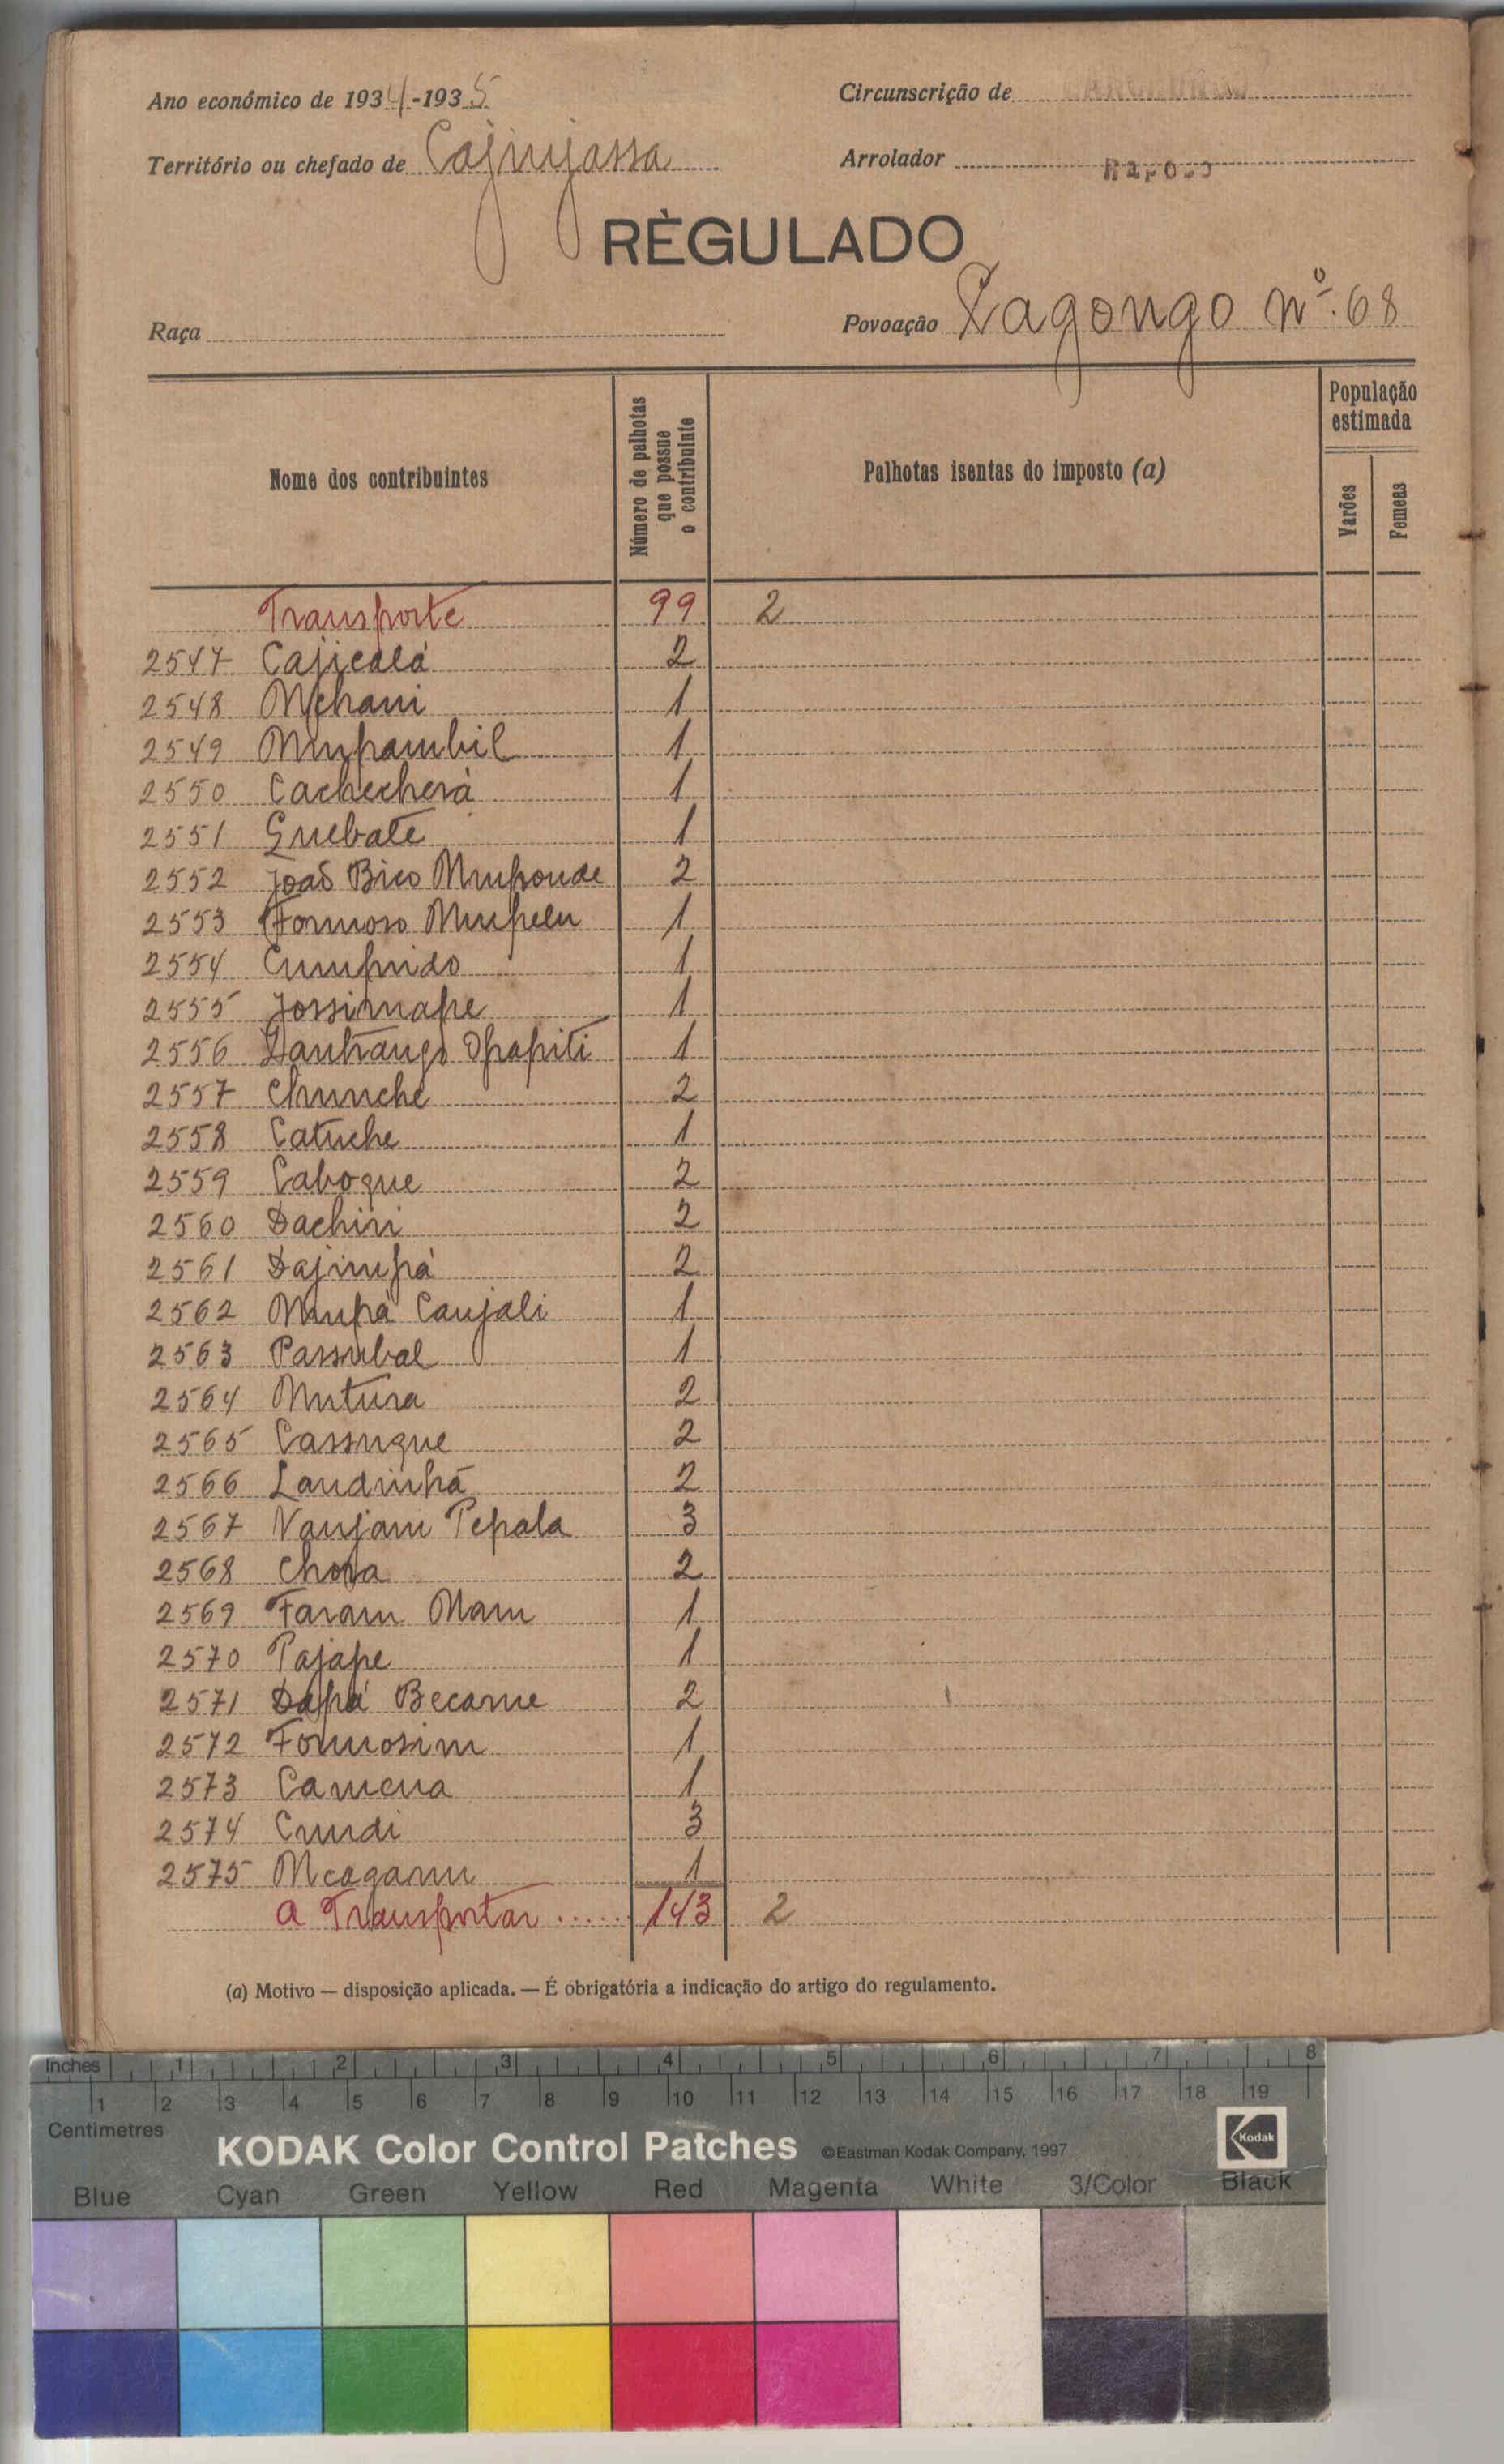 Ano económico de 1934-1935
Circunscrição de
Território ou chefado de Cajinjassa
Arrolador Raposo
RÈGULADO
Raça
Povoação Zagongo nº. 68
Nome dos contribuintes
Número de palhotas que possue o contribuinte
Palhotas isentas do imposto (a)
População estimada
Varões
Femeas
Transporte 99 2
2547 Cajicalá 2
2548 Mchani 1
2549 Mupambil 1
2550 Cachecherà 1
2551 Guebate 1
2552 João Bico Muponde 2
2553 Formoso Mupelu 1
2554 Cumprido 1
2555 Jossimape 1
2556 Opapiti 1
2557 Chunche 2
2558 Catuche 1
2559 Caboque 2
2560 Dachiri 2
2561 Dajimpá 2
2562 Mupá Canjali 1
2563 Passubal 1
2564 Mutura 2
2565 Cassuque 2
2566 Landinhá 2
2567 Vanjam Pepala 3
2568 Chova 2
2569 Faram Mam 1
2570 Pajape 1
2571 Dapá Became 2
2572 Formosim 1
2573 Camcua 1
2574 Cundi 3
2575 Mcaganu 1
a Transportar ...... 143 2
(a) Motivo — disposição aplicada. — É obrigatória a indicação do artigo do regulamento.
Inches 1 2 3 4 5 6 7 8
1 2 3 4 5 6 7 8 9 10 11 12 13 14 15 16 17 18 19
Centimetres
KODAK Color Control Patches ©Eastman Kodak Company, 1997 Kodak
Blue Cyan Green Yellow Red Magenta White 3/Color Black